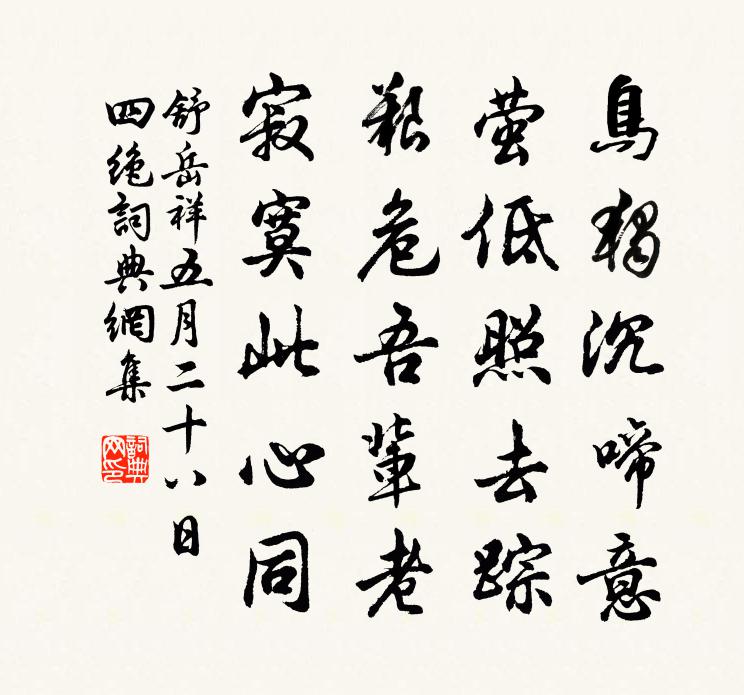 鳥獨沉啼意
螢低照去踪
艱危吾輩老
寂寞此心同
舒岳祥五月二十八日
四絕詞典網集
詞典
网印